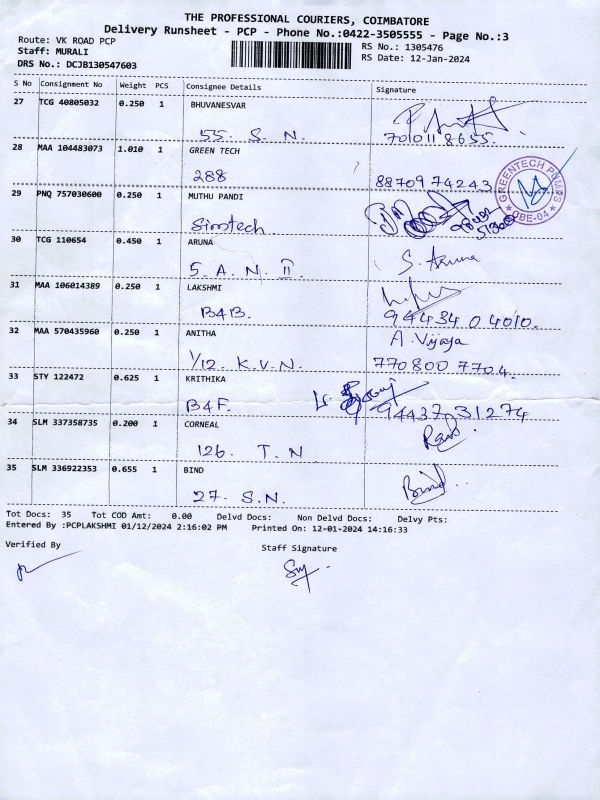 THE PROFESSIONAL COURIERS, COIMBATORE
Delivery Runsheet - PCP - Phone No.:0422-3505555 - Page No.:3
Route: VK ROAD PCP
Staff: MURALI
DRS No.: DCJB130547603
RS No.: 1305476
RS Date: 12-Jan-2024
S No Consignment No Weight PCS Consignee Details Signature
27 TCG 40805032 0.250 1 BHUVANESVAR
55. S. N. 701011 8655.
28 MAA 104483073 1.010 1 GREEN TECH
288 8870974243
GREENTECH PUMPS
CBE-04
29 PNQ 757030600 0.250 1 MUTHU PANDI
Simtech
30 TCG 110654 0.450 1 ARUNA
5. A. N. II S. Aruna
31 MAA 106014389 0.250 1 LAKSHMI
B4B. 94434 04010.
32 MAA 570435960 0.250 1 ANITHA A. Vijaya
1/12. K.V.N. 770800 7704.
33 STY 122472 0.625 1 KRITHIKA
B4F. 9443731274
34 SLM 337358735 0.200 1 CORNEAL
126. T. N
35 SLM 336922353 0.655 1 BIND
27. S.N. Bind
Tot Docs: 35 Tot COD Amt: 0.00 Delvd Docs: Non Delvd Docs: Delvy Pts:
Entered By :PCPLAKSHMI 01/12/2024 2:16:02 PM Printed On: 12-01-2024 14:16:33
Verified By Staff Signature